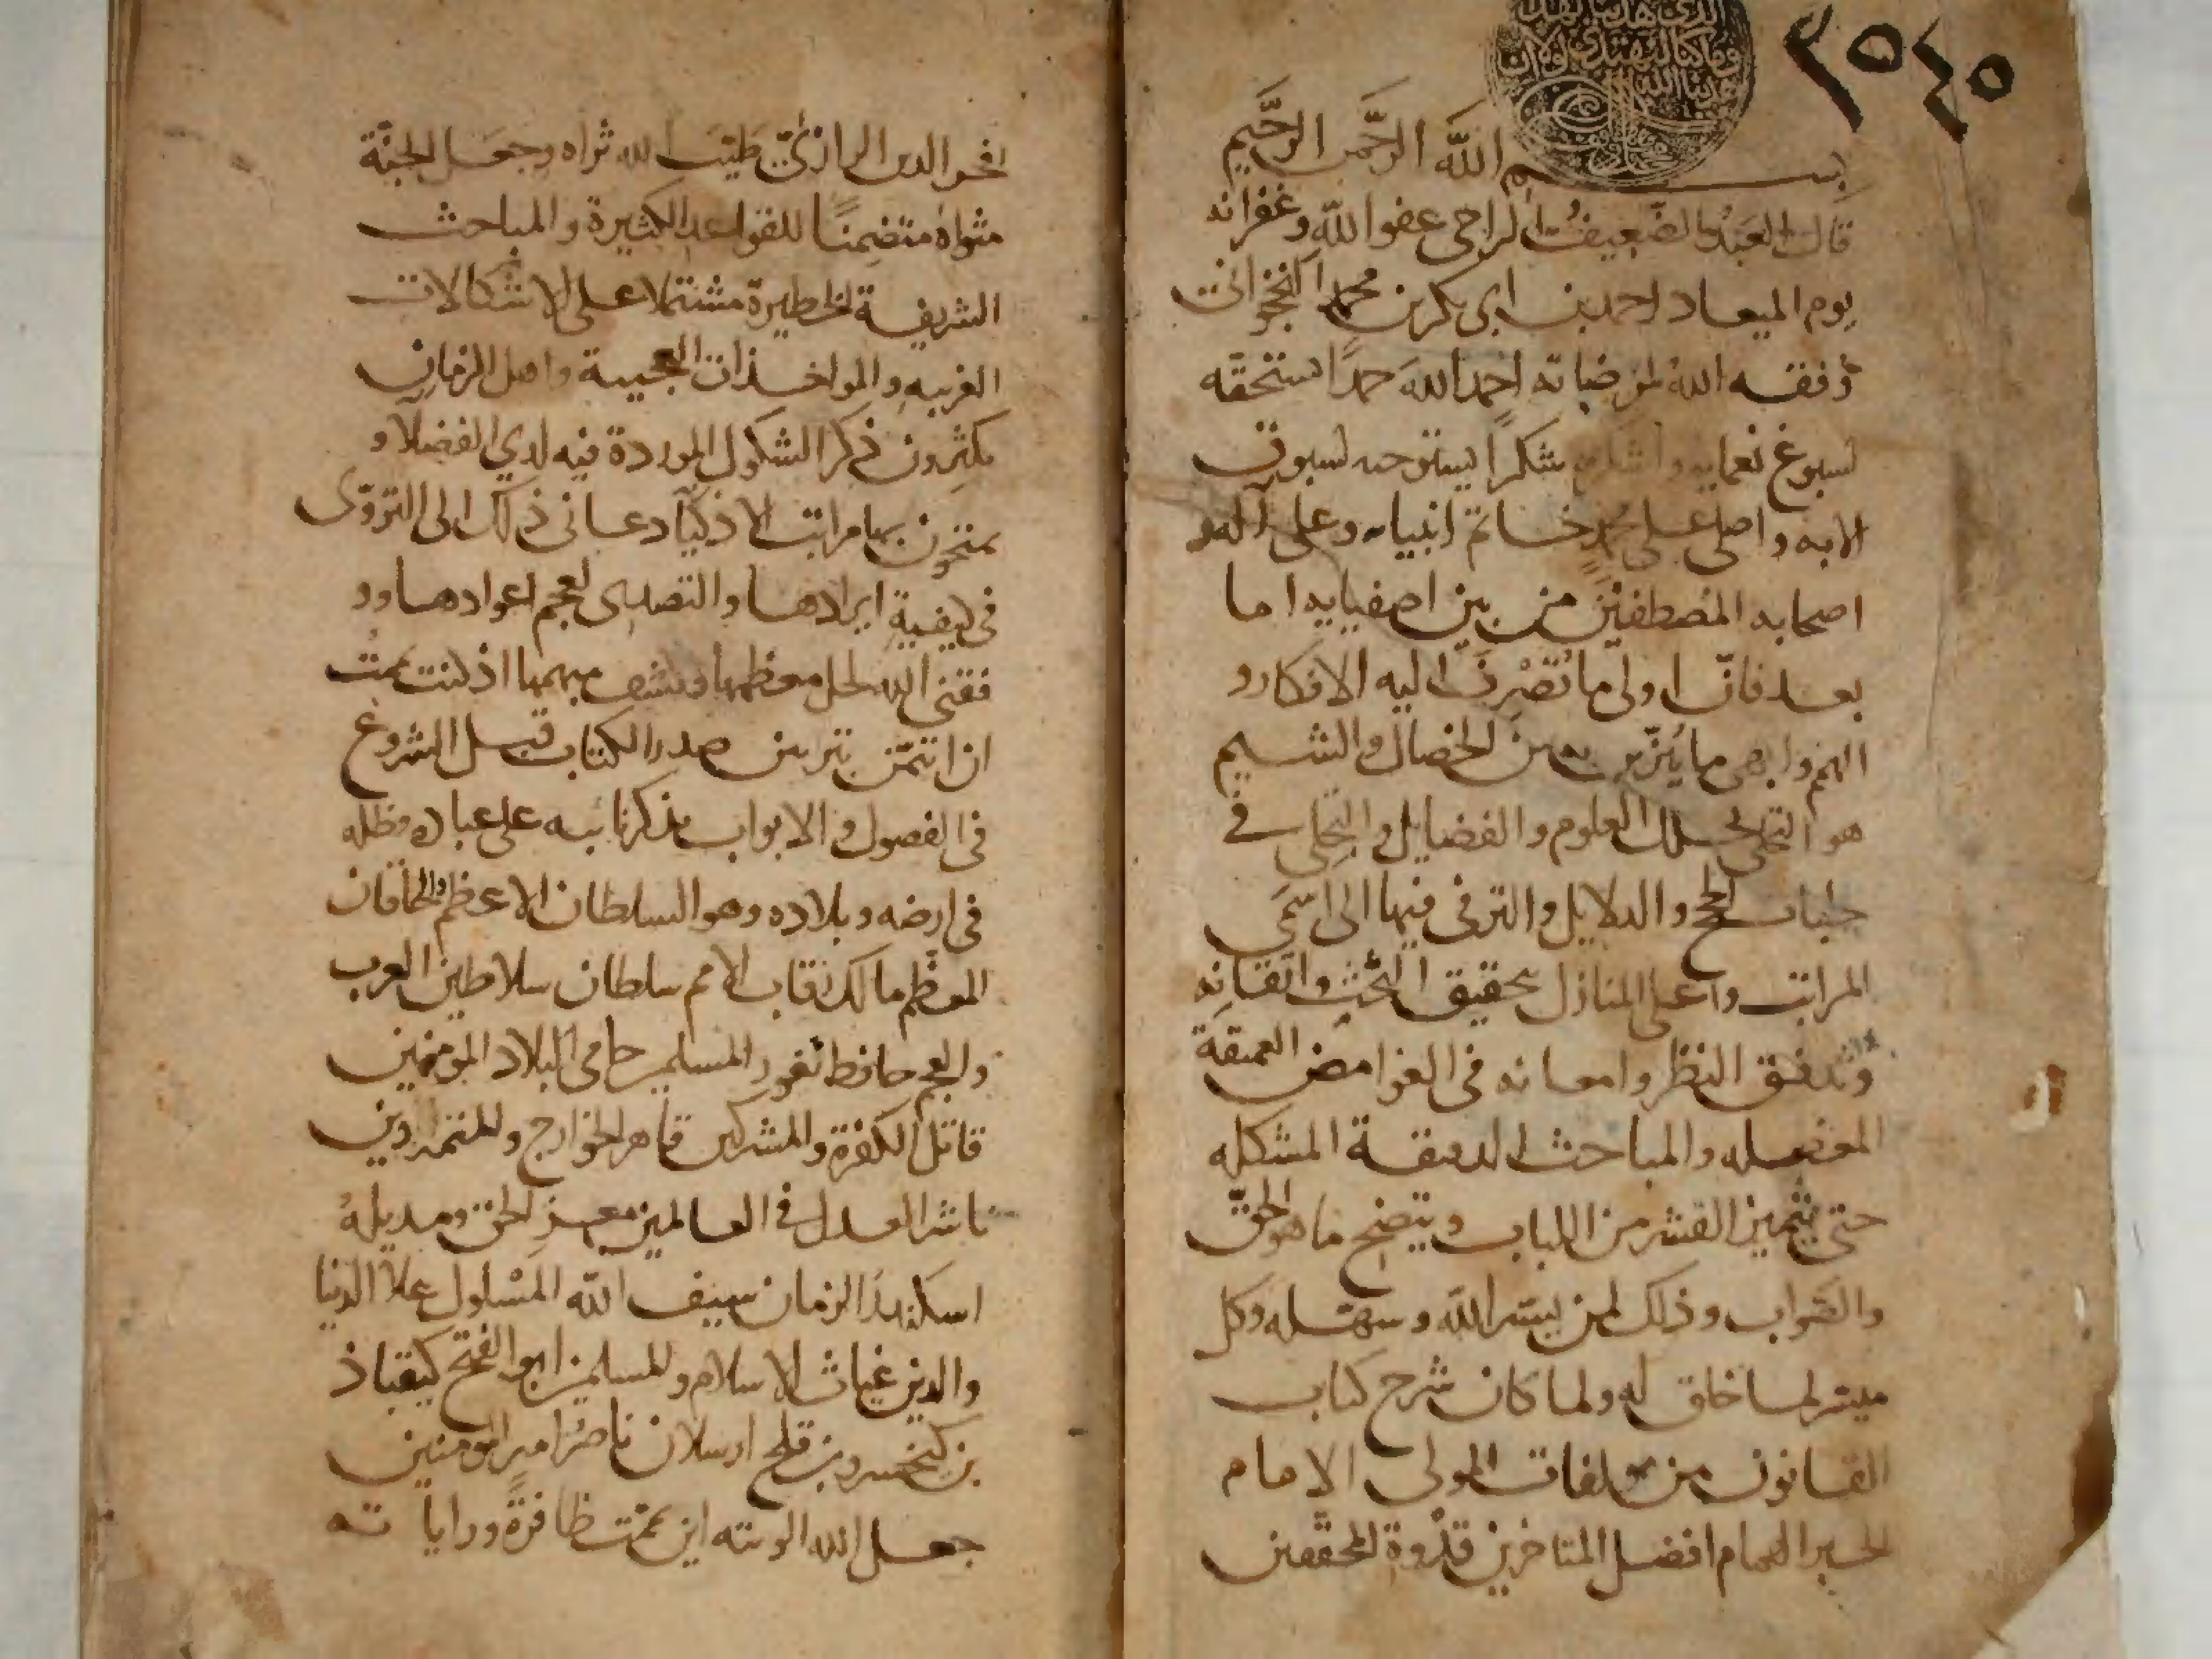 ٣٥٤٠
الذي هدينا لهذا
وما كنا لنهتدي لولا ان
هدينا الله
بسم الله الرحمن الرحيم
قال العبد الضعيف الراجي عفو الله وغفرانه
يوم الميعاد احمد بن ابي بكر بن محمد النخجواني
وفقه الله لمرضاته احمد الله حمدا استحقه
لسبوغ نعمايه واشكره شكرا يستوجبه لسبوق
الايه واصلي على محمد خاتم انبيايه وعلى اله و
اصحابه المصطفين من بين اصفيايه اما
بعد فان اولى ما تصرف اليه الافكار و
الهمم وابهى ما يتزين به من الخصال والشيم
هو التحلي بحلل العلوم والفضايل والتجلي في
حلبات الحجج والدلايل والترقي فيها الى اسمى
المراتب واعلى المنازل بتحقيق البحث واتقانه
وتدقيق النظر وامعانه في الغوامض العميقة
المعضله والمباحث الدقيقة المشكله
حتى يتميز القشر من اللباب ويتضح ما هو الحق
والصواب وذلك لمن يسر الله وسهله وكل
ميسر لما خلق له ولما كان شرح كتاب
القانون من مولفات المولى الامام
الحبر الهمام افضل المتاخرين قدوة المحققين
فخر الدين الرازي طيب الله ثراه وجعل الجنة
مثواه متضمنا للقواعد الكثيرة والمباحث
الشريفة الخطيرة مشتملا على الاشكالات
الغريبه والمواخذات العجيبة واهل الزمان
يكثرون ذكر الشكوك الموردة فيه لدي الفضلا و
يمتحنون بها مراتب الاذكيا دعاني ذلك الى التروي
في كيفية ايرادها والتصدي لعجم اعوادها وو
فقني الله لحل معظمها وكشف مبهمها اذ كنت
ان اتيمن بتزيين صدر الكتاب قبل الشروع
في الفصول والابواب بذكر نايبه على عباده وظله
في ارضه وبلاده وهو السلطان الاعظم والخاقان
المعظم مالك رقاب الامم سلطان سلاطين العرب
والعجم حافظ ثغور المسلمين حامي البلاد المومنين
قاتل الكفرة والمشركين قاهر الخوارج والمتمردين
ناشر العدل في العالمين معز الحق ومديله
اسكندر الزمان سيف الله المسلول علا الدنيا
والدين غياث الاسلام والمسلمين ابو الفتح كيقباذ
بن كيخسرو بن قلج ارسلان ناصر امير المومنين
جعل الله الويته اين يممت ظافرة وراياته